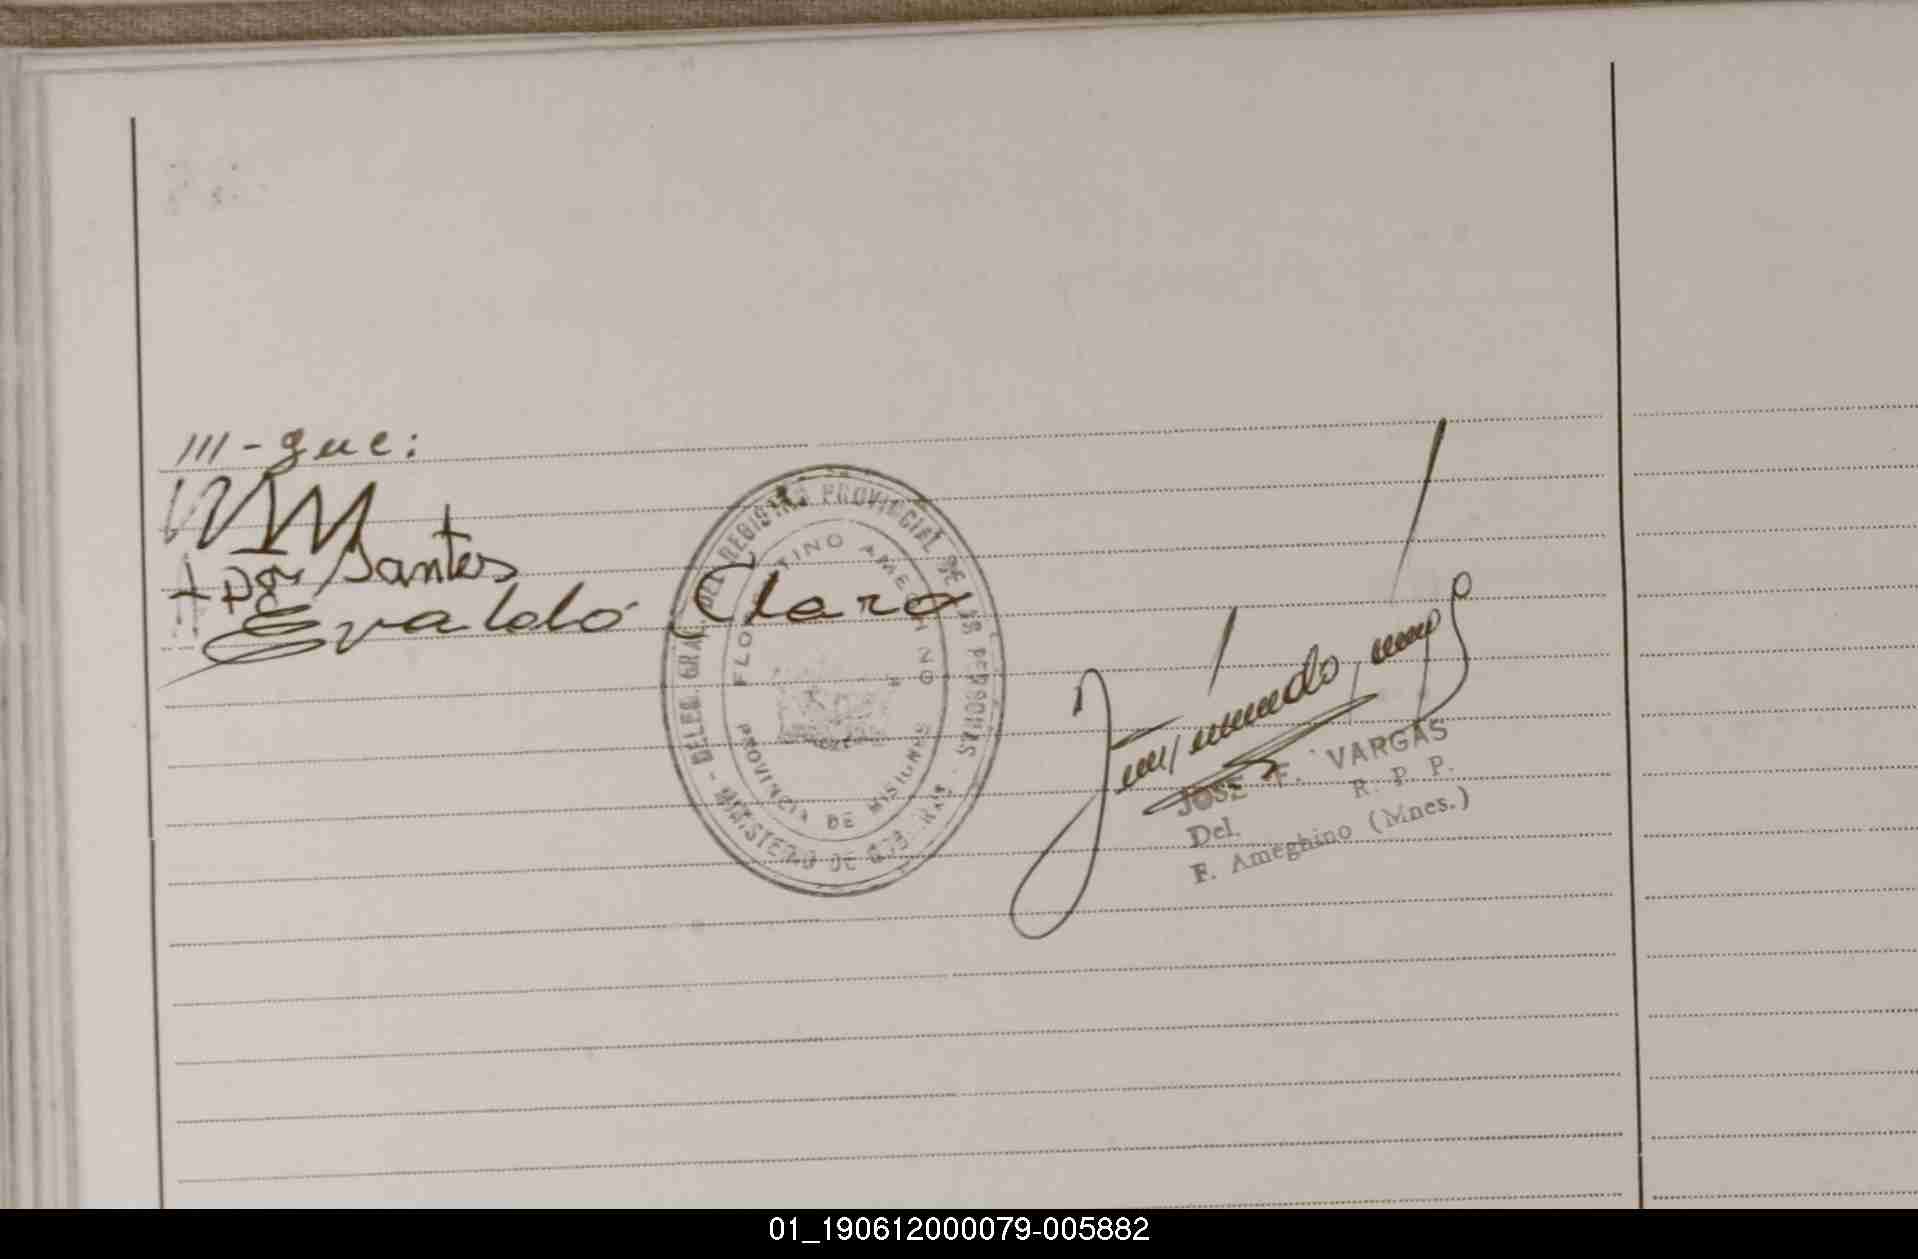 ///-gue:
Santos
Evaldo Claro
DELEG. GRAL. DEL REGISTRO PROVINCIAL DE LAS PERSONAS - MINISTERIO DE GOB.
FLORENTINO AMEGHINO
PROVINCIA DE MISIONES
JOSE F. VARGAS
Del. R. P. P.
F. Ameghino (Mnes.)
01_190612000079-005882